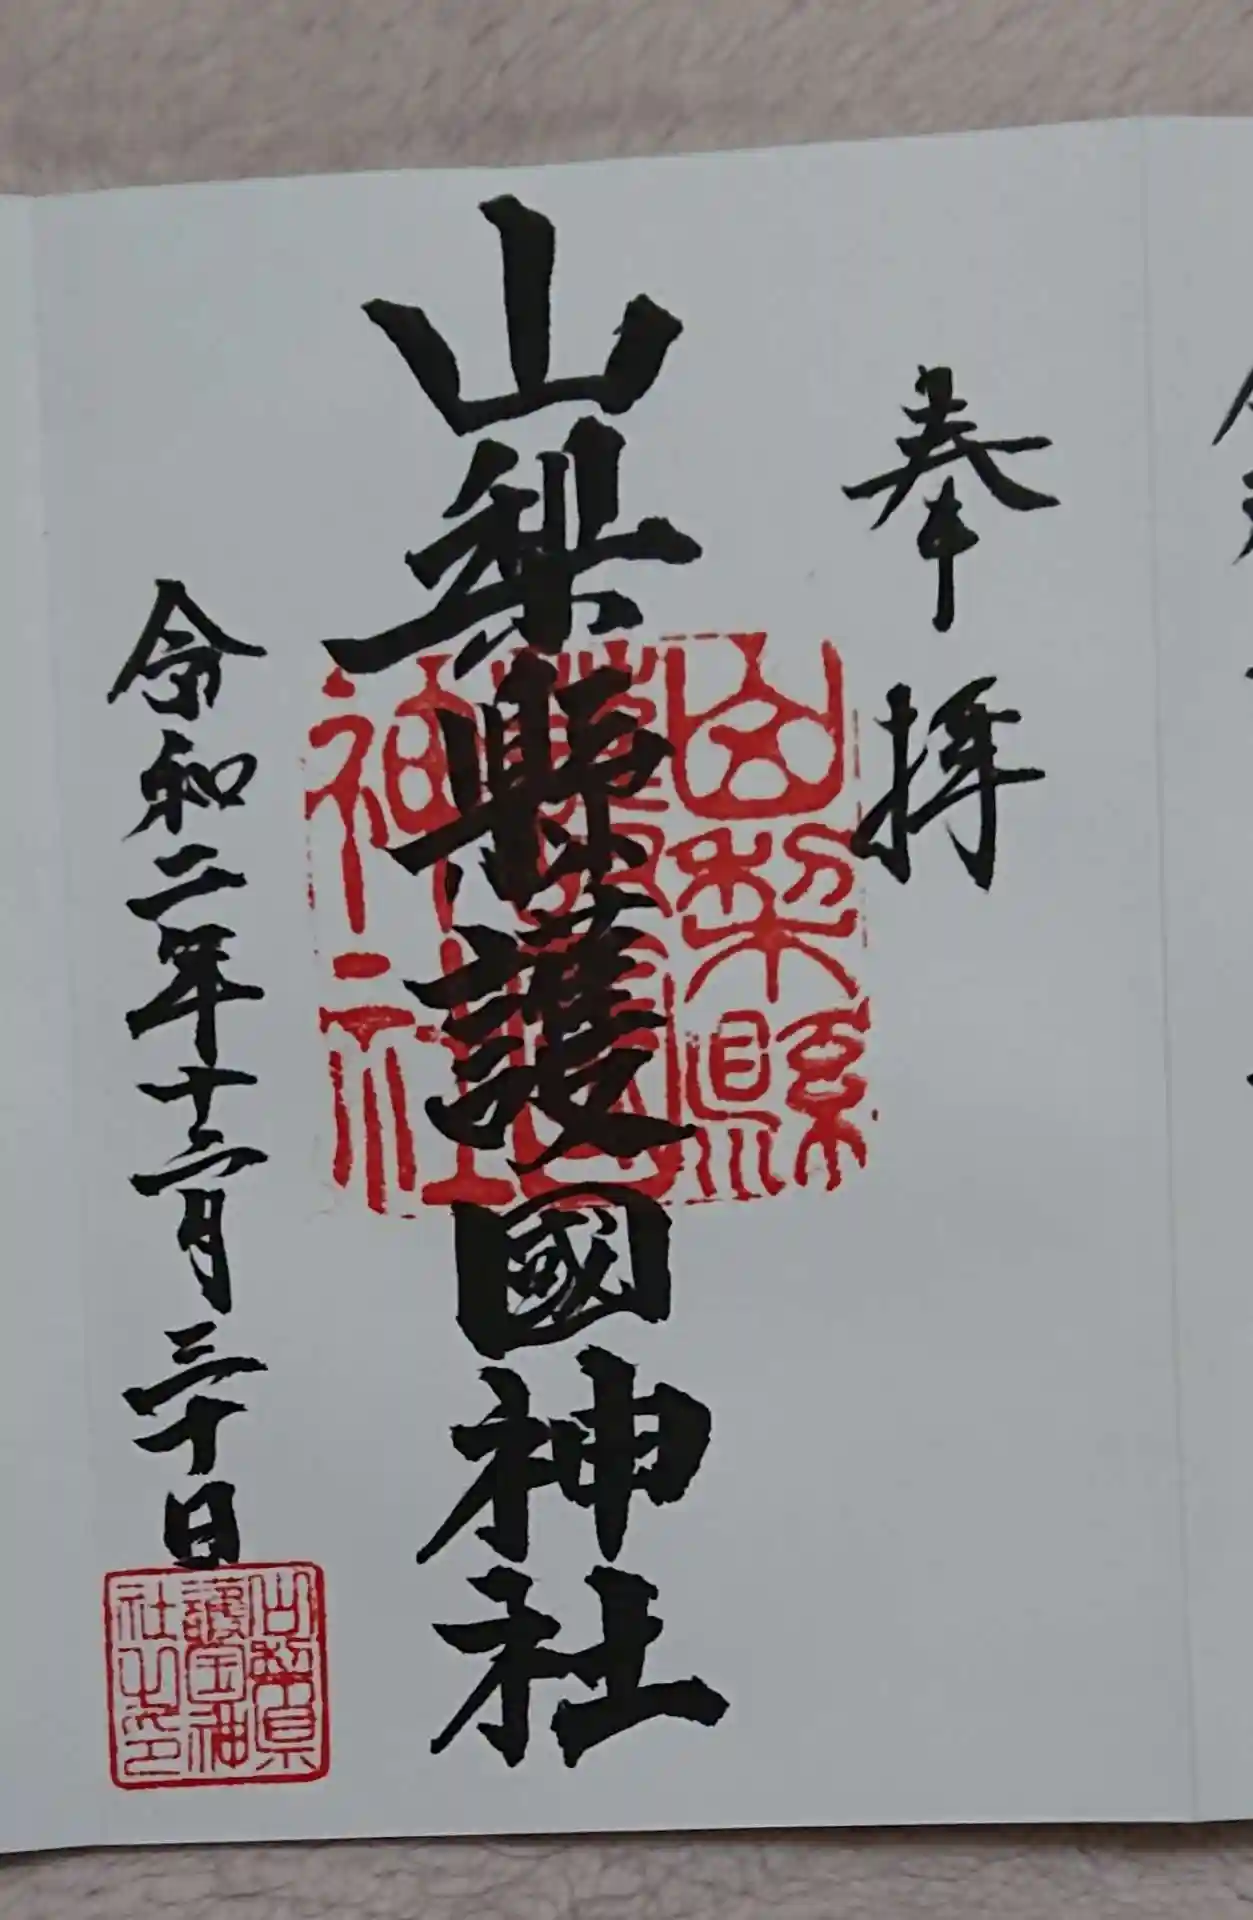 奉拝
山梨縣護國神社
山梨縣護國神社
令和二年十二月三十日
山梨縣護國神社之印